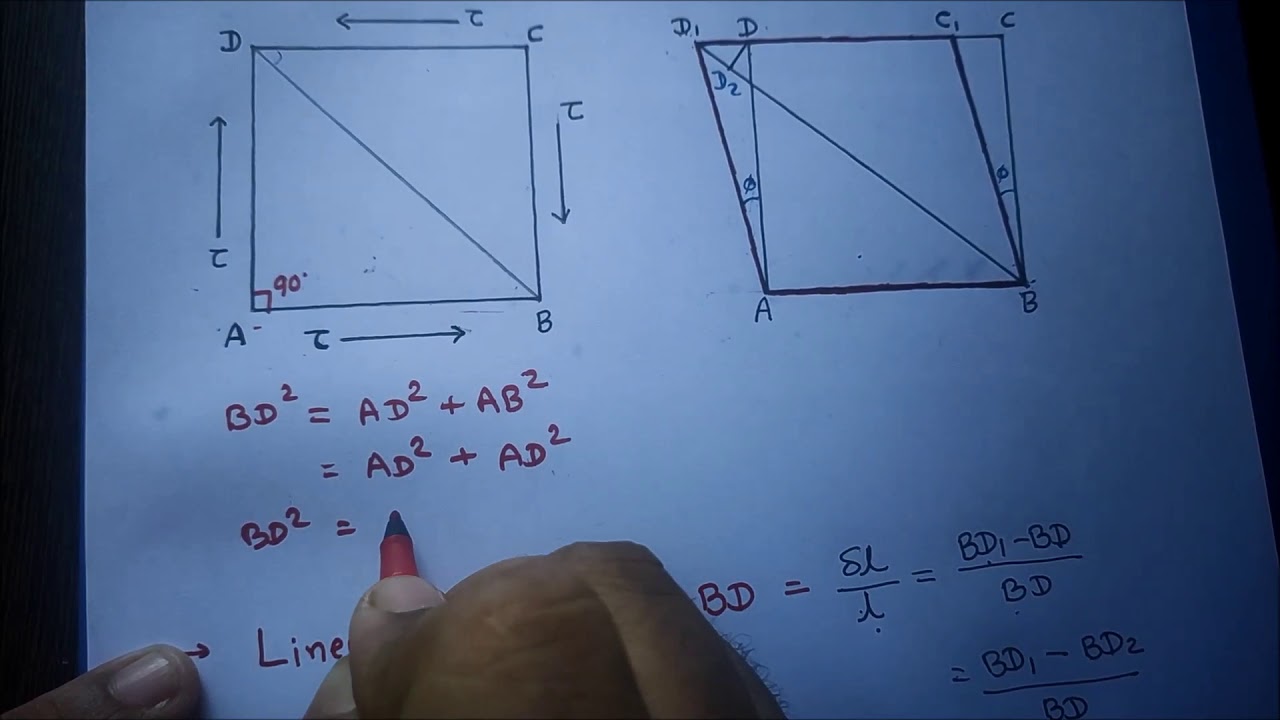 τ
D C
τ
τ
90°
A B
τ
D₁ D C₁ C
D₂
φ φ
A B
BD² = AD² + AB²
= AD² + AD²
BD² =
→ Line
BD = δl/l = BD₁-BD/BD
= BD₁-BD₂/BD